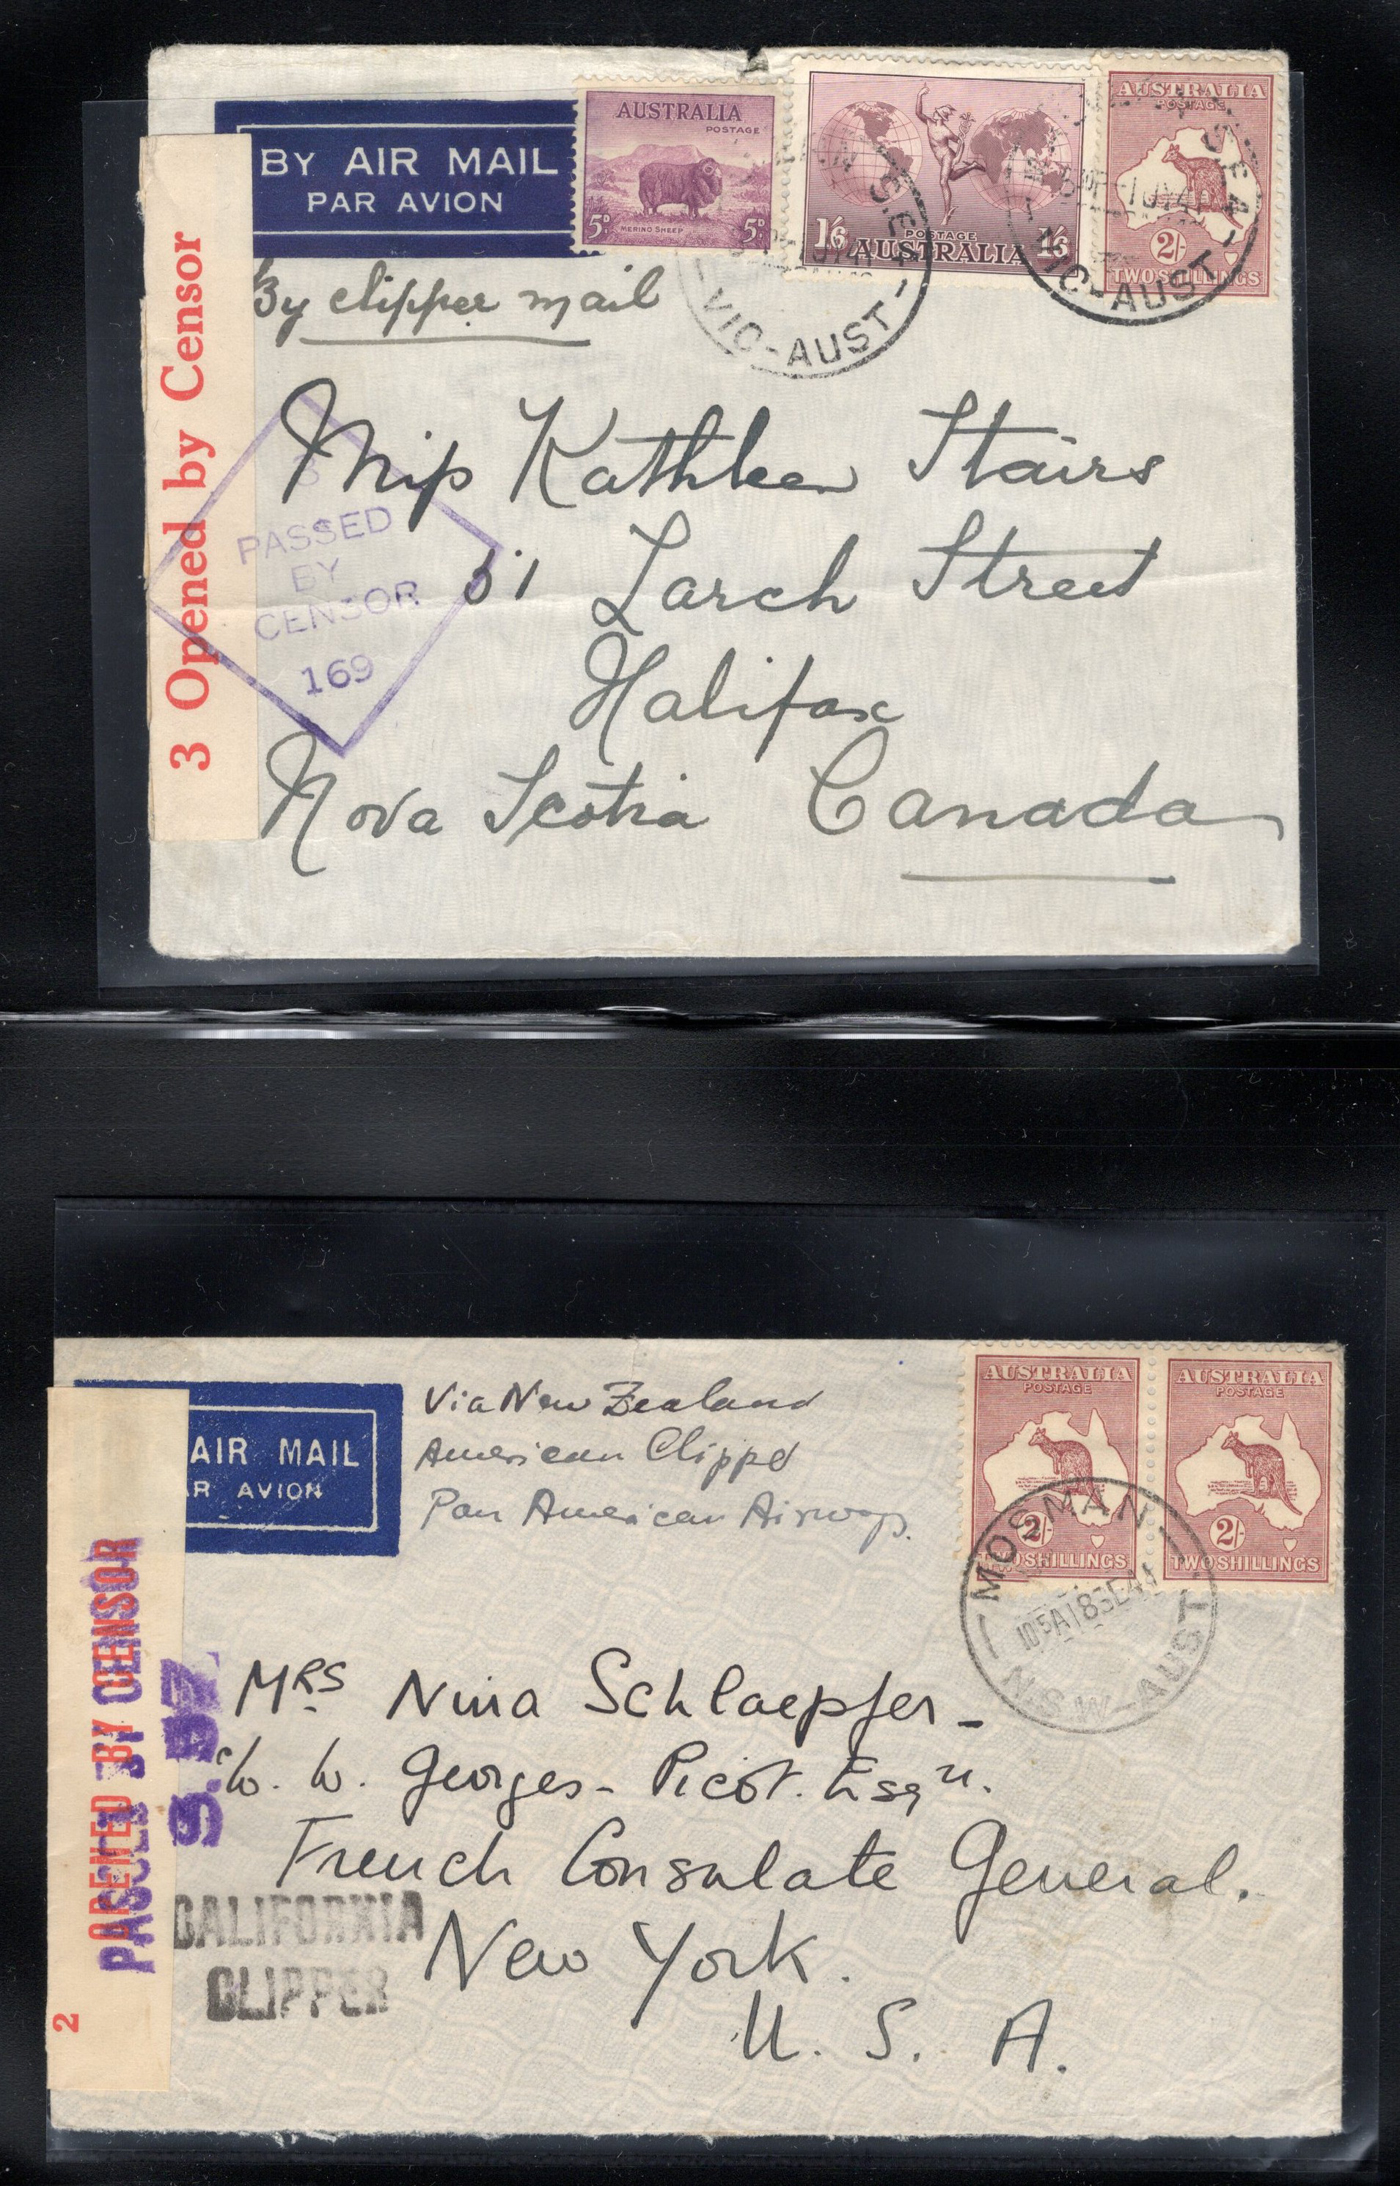 BY AIR MAIL
PAR AVION
AUSTRALIA
POSTAGE
5D
MERINO SHEEP
5D
1/6
POSTAGE
AUSTRALIA
1/6
AUSTRALIA
POSTAGE
2/-
TWO SHILLINGS
VIC-AUST
VIC-AUST
By clipper mail
3 Opened by Censor
3
PASSED
BY
CENSOR
169
Miss Kathleen Stairs
51 Larch Street
Halifax
Nova Scotia Canada
AIR MAIL
AR AVION
Via New Zealand
American Clipper
Pan American Airways.
AUSTRALIA
POSTAGE
2/-
TWO SHILLINGS
AUSTRALIA
POSTAGE
2/-
TWO SHILLINGS
MOSMAN
18 SE 41
N.S.W-AUST
2 OPENED BY CENSOR
PASSED BY CENSOR
S. 57
MRS Nina Schlaepfer-
c/o. W. Georges-Picot. Esqu.
French Consulate General.
New York.
U. S. A.
CALIFORNIA
CLIPPER